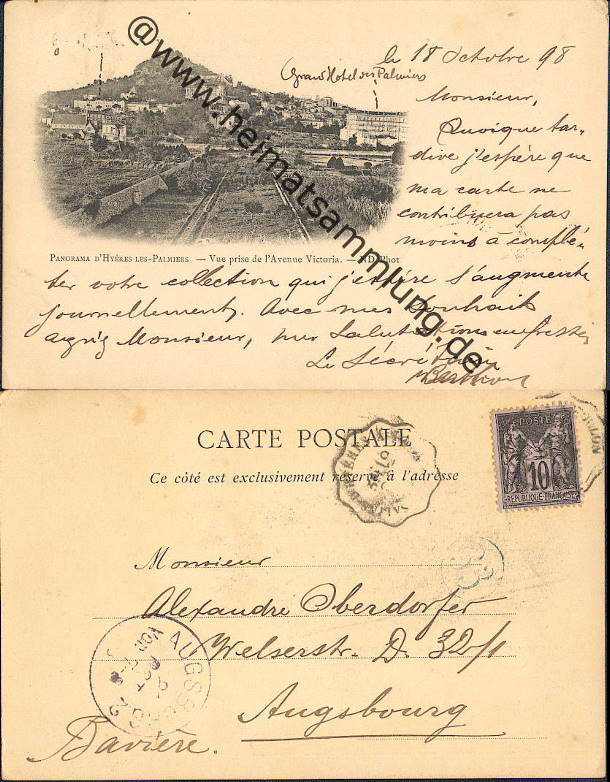 @www.heimatsammlung.de
Grand Hotel des Palmiers
le 18 Octobre 98
Monsieur,
Quoique tar-
dive j'espère que
ma carte ne
contribuera pas
moins à complé-
PANORAMA D'HYÈRES LES-PALMIERS — Vue prise de l'Avenue Victoria. — ND Phot
ter votre collection qui j'espère s'augmente
journellement. Avec mes souhaits
agréez Monsieur, mes Salutations empressées
Le Secrétaire
CARTE POSTALE
Ce côté est exclusivement réservé à l'adresse
POSTE
10
REPUBLIQUE FRANÇAISE
Monsieur
Alexandre Oberdorfer
Welserstr. D. 32/1
Augsbourg
Bavière.
AUGSBURG